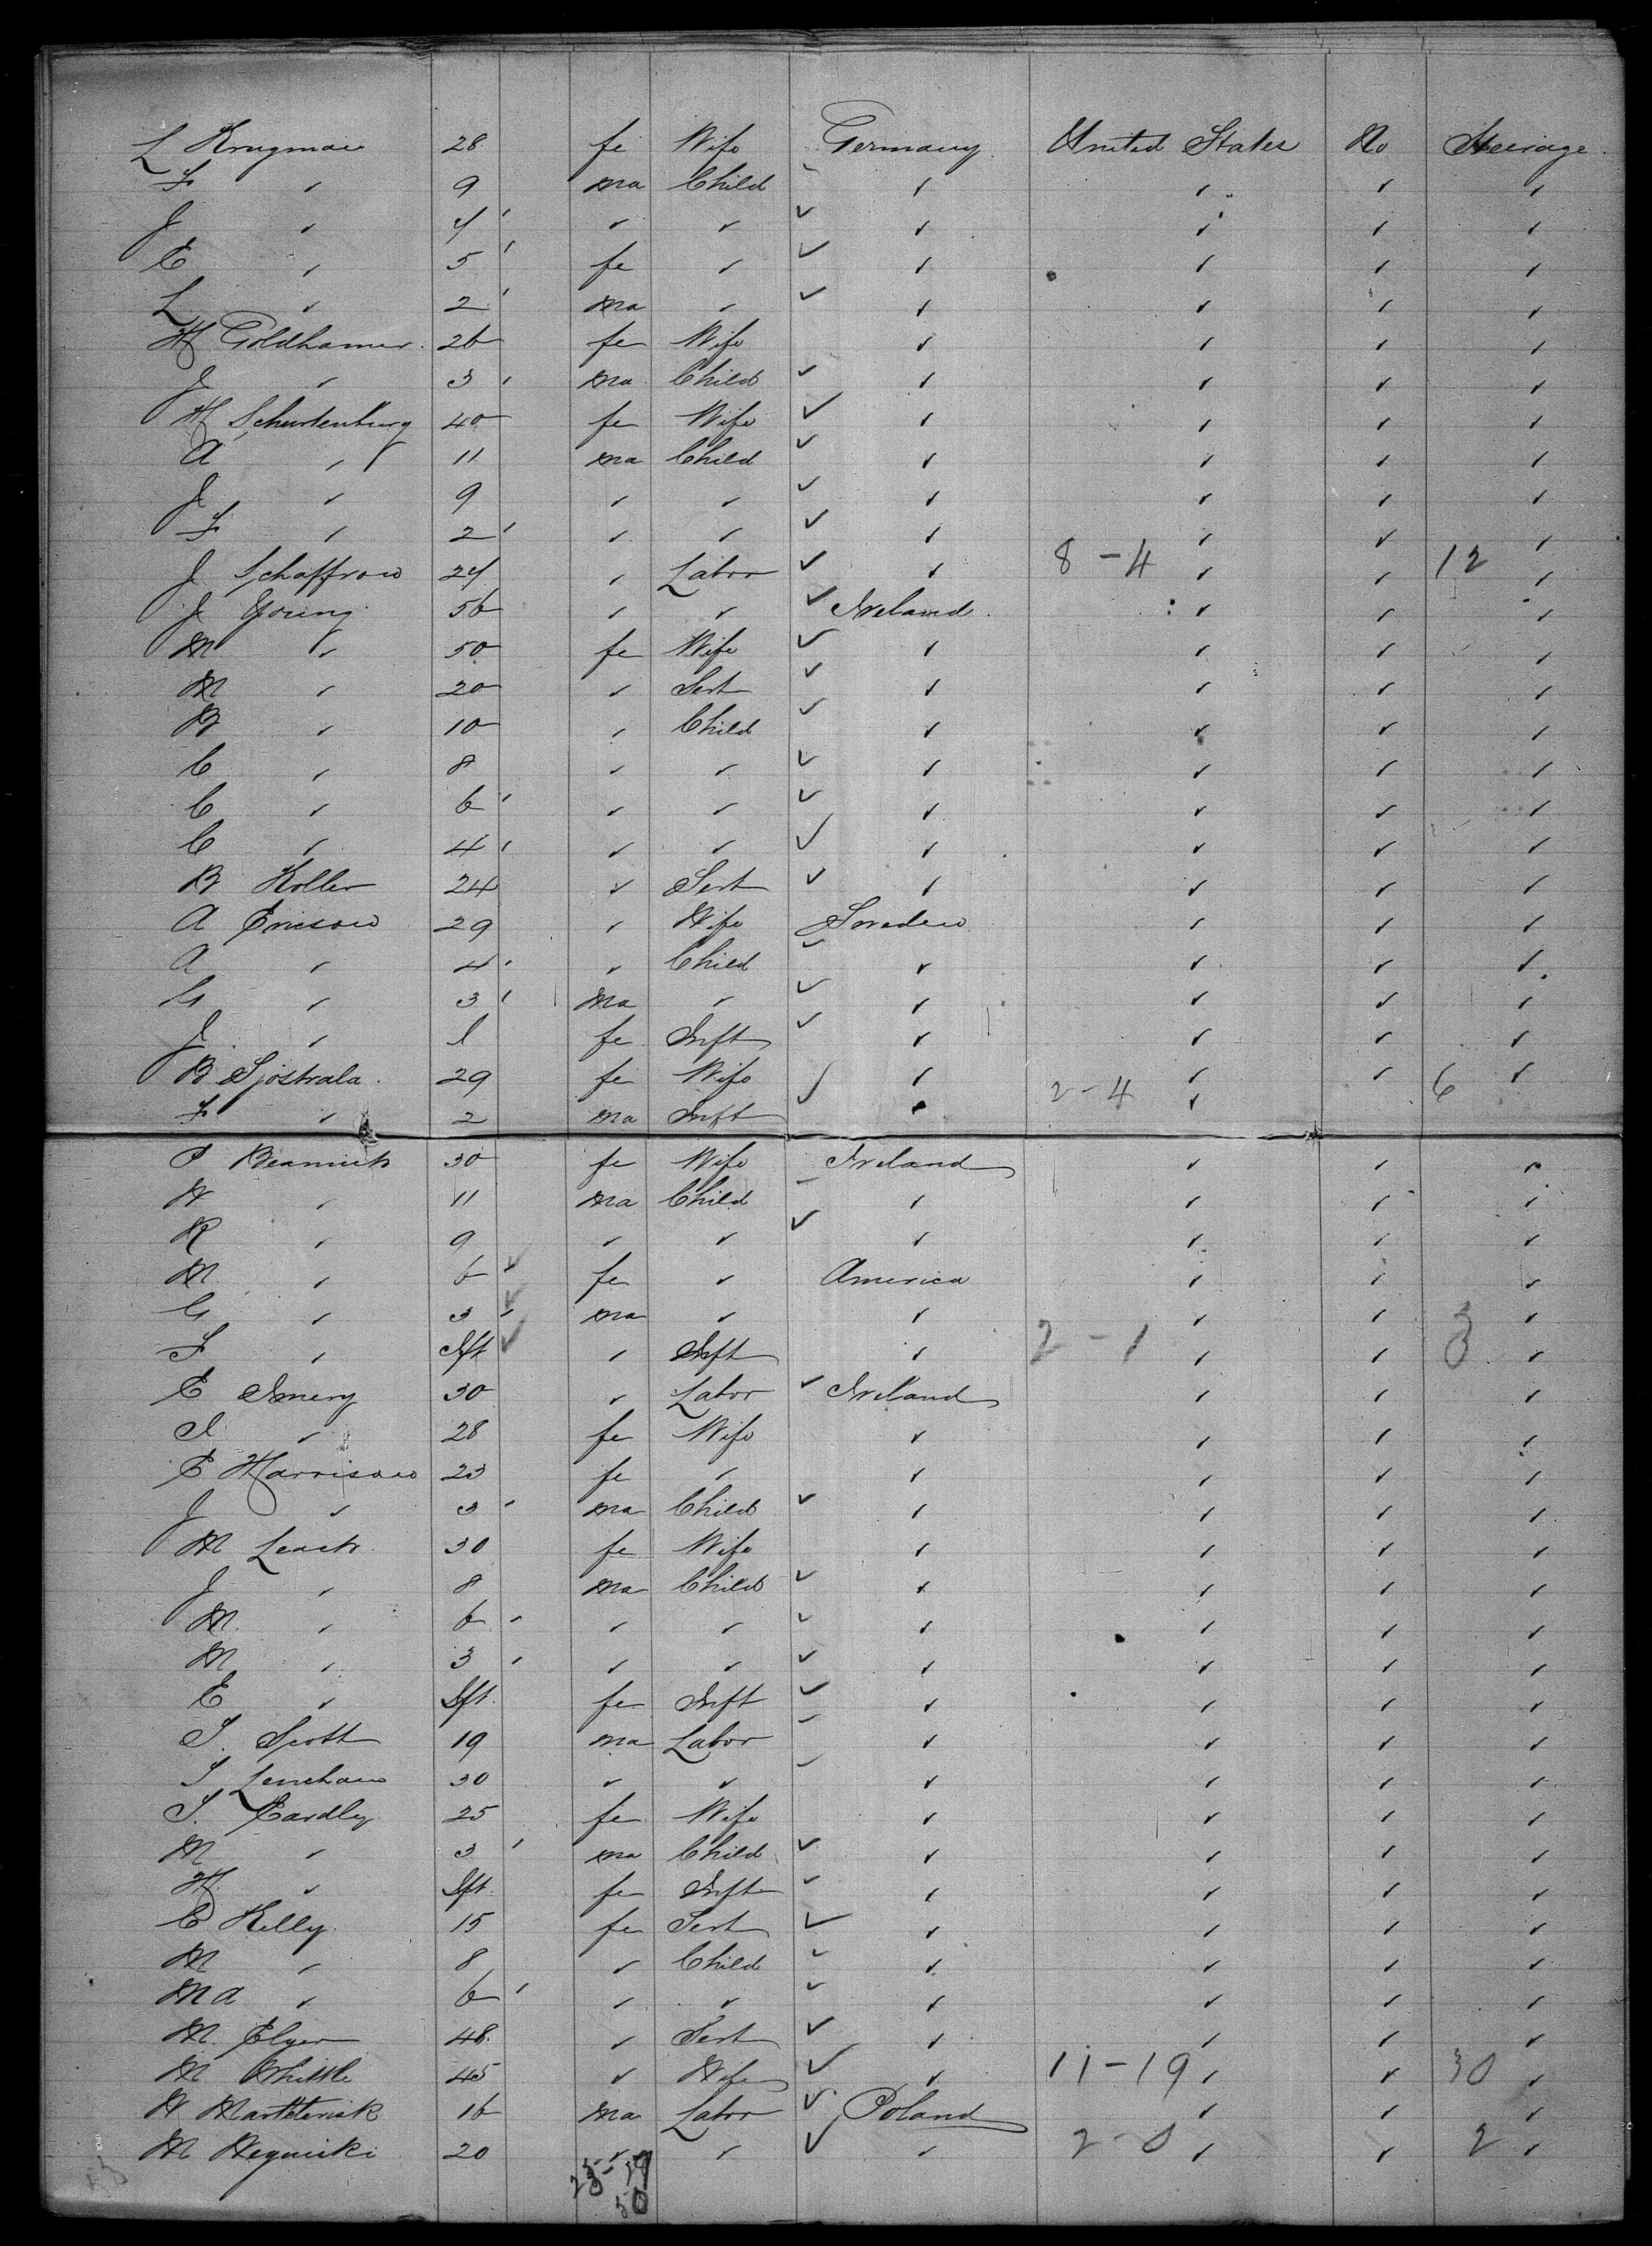 L Krugman 28 fe Wife Germany United States No Steerage
F " 9 ma Child " " " "
J " 7 " " " " " "
E " 5 fe " " " " "
L " 2 ma " " " " "
H Goldhamer 26 fe Wife " " " "
J " 3 ma Child " " " "
H Schurtenburg 40 fe Wife " " " "
A " 11 ma Child " " " "
J " 9 " " " " " "
F " 2 " " " " " "
J Schaffrow 24 " Labor " 8-4 " " 12 "
J Young 56 " " Ireland " " "
M " 50 fe Wife " " " "
M " 20 " Sert " " " "
B " 10 " Child " " " "
C " 8 " " " " " "
C " 6 " " " " " "
C " 4 " " " " " "
B Koller 24 " Sert " " " "
A Ericson 29 " Wife Sweden " " "
A " 4 " Child " " " "
G " 3 ma " " " " "
J " 1 fe Inft " " " "
B Sjostrala 29 fe Wife " " " "
F " 2 ma Inft " 2-4 " 6
P 30 fe Wife Ireland " " "
W " 11 ma Child " " " "
R " 9 " " " " " "
M " 6 fe " America " " "
G " 3 ma " " " " "
F " Ift " Inft " 2-1 " " 3 "
E Emery 30 " Labor Ireland " " "
I " 28 fe Wife " " " "
E Harrison 23 fe " " " " "
J " 3 ma Child " " " "
M Leach 30 fe Wife " " " "
J " 8 ma Child " " " "
M " 6 " " " " " "
M " 3 " " " " " "
E " Ift fe Inft " " " "
S. Scott 19 ma Labor " " " "
S Lenehan 30 " " " " " "
S. Eardley 25 fe Wife " " " "
M " 3 ma Child " " " "
H " Ift fe Inft " " " "
C Kelly 15 fe Sert " " " "
M " 8 " Child " " " "
Ma " 6 " " " " " "
M. Elyer 48 " Sert " " " "
M Whittle 45 " Wife " 11-19 " " 30 "
W 16 ma Labor Poland " " "
M 20 " " " 2-0 " " 2 "